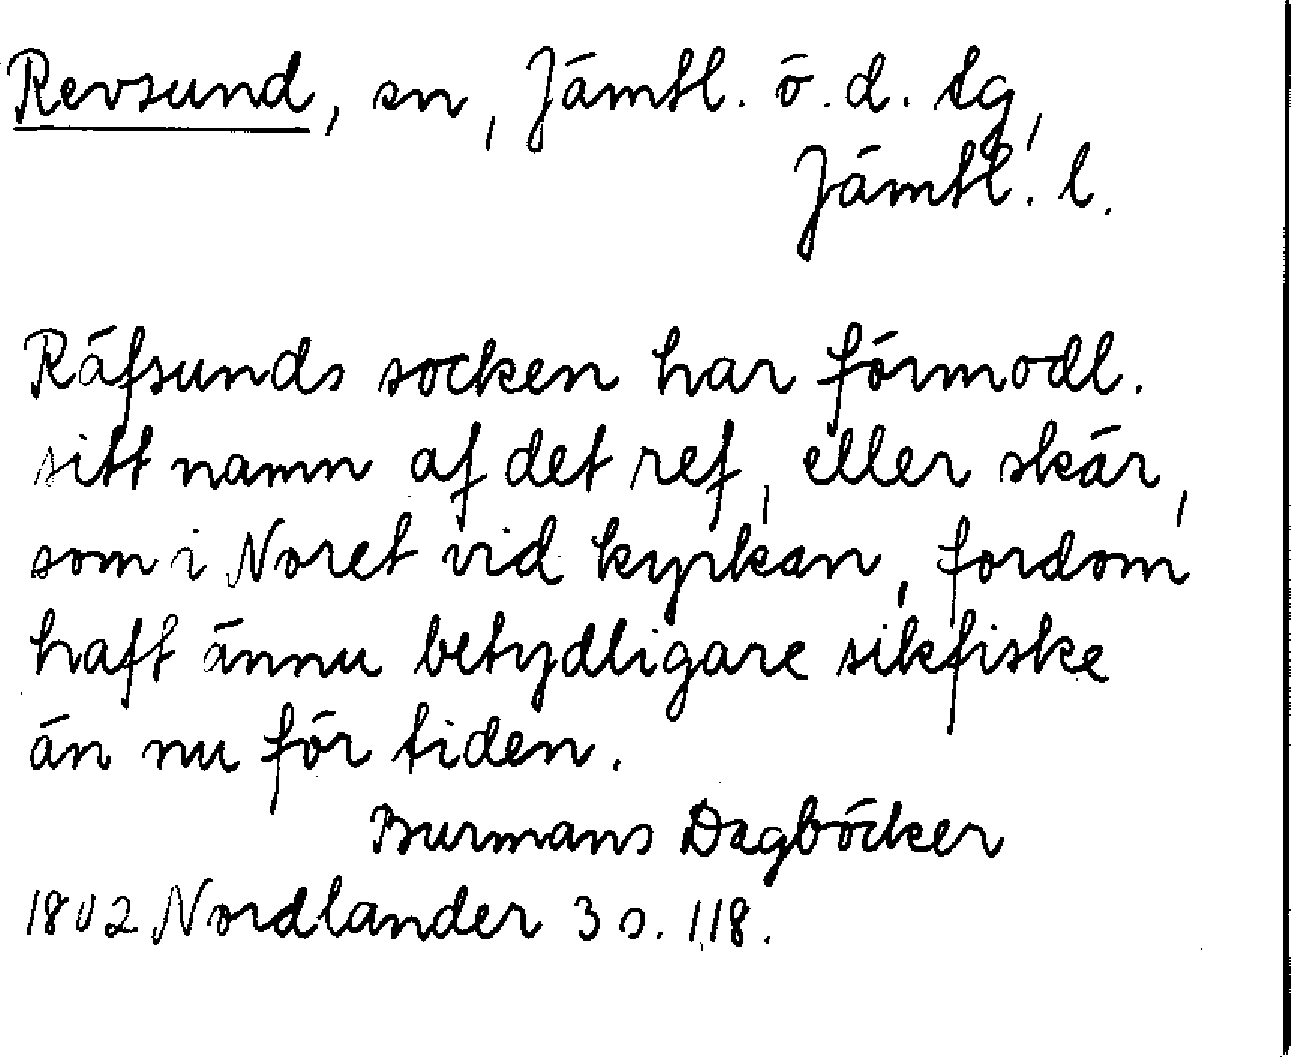 Revsund, sn, Jämtl. ö. d. tg,
Jämtl. l.
Räfsunds socken har förmodl.
sitt namn af det ref, eller skär,
som i Noret vid kyrkan, fordom
haft ännu betydligare sikfiske
än nu för tiden.
Burmans Dagböcker
1802 Nordlander 3 s. 118.